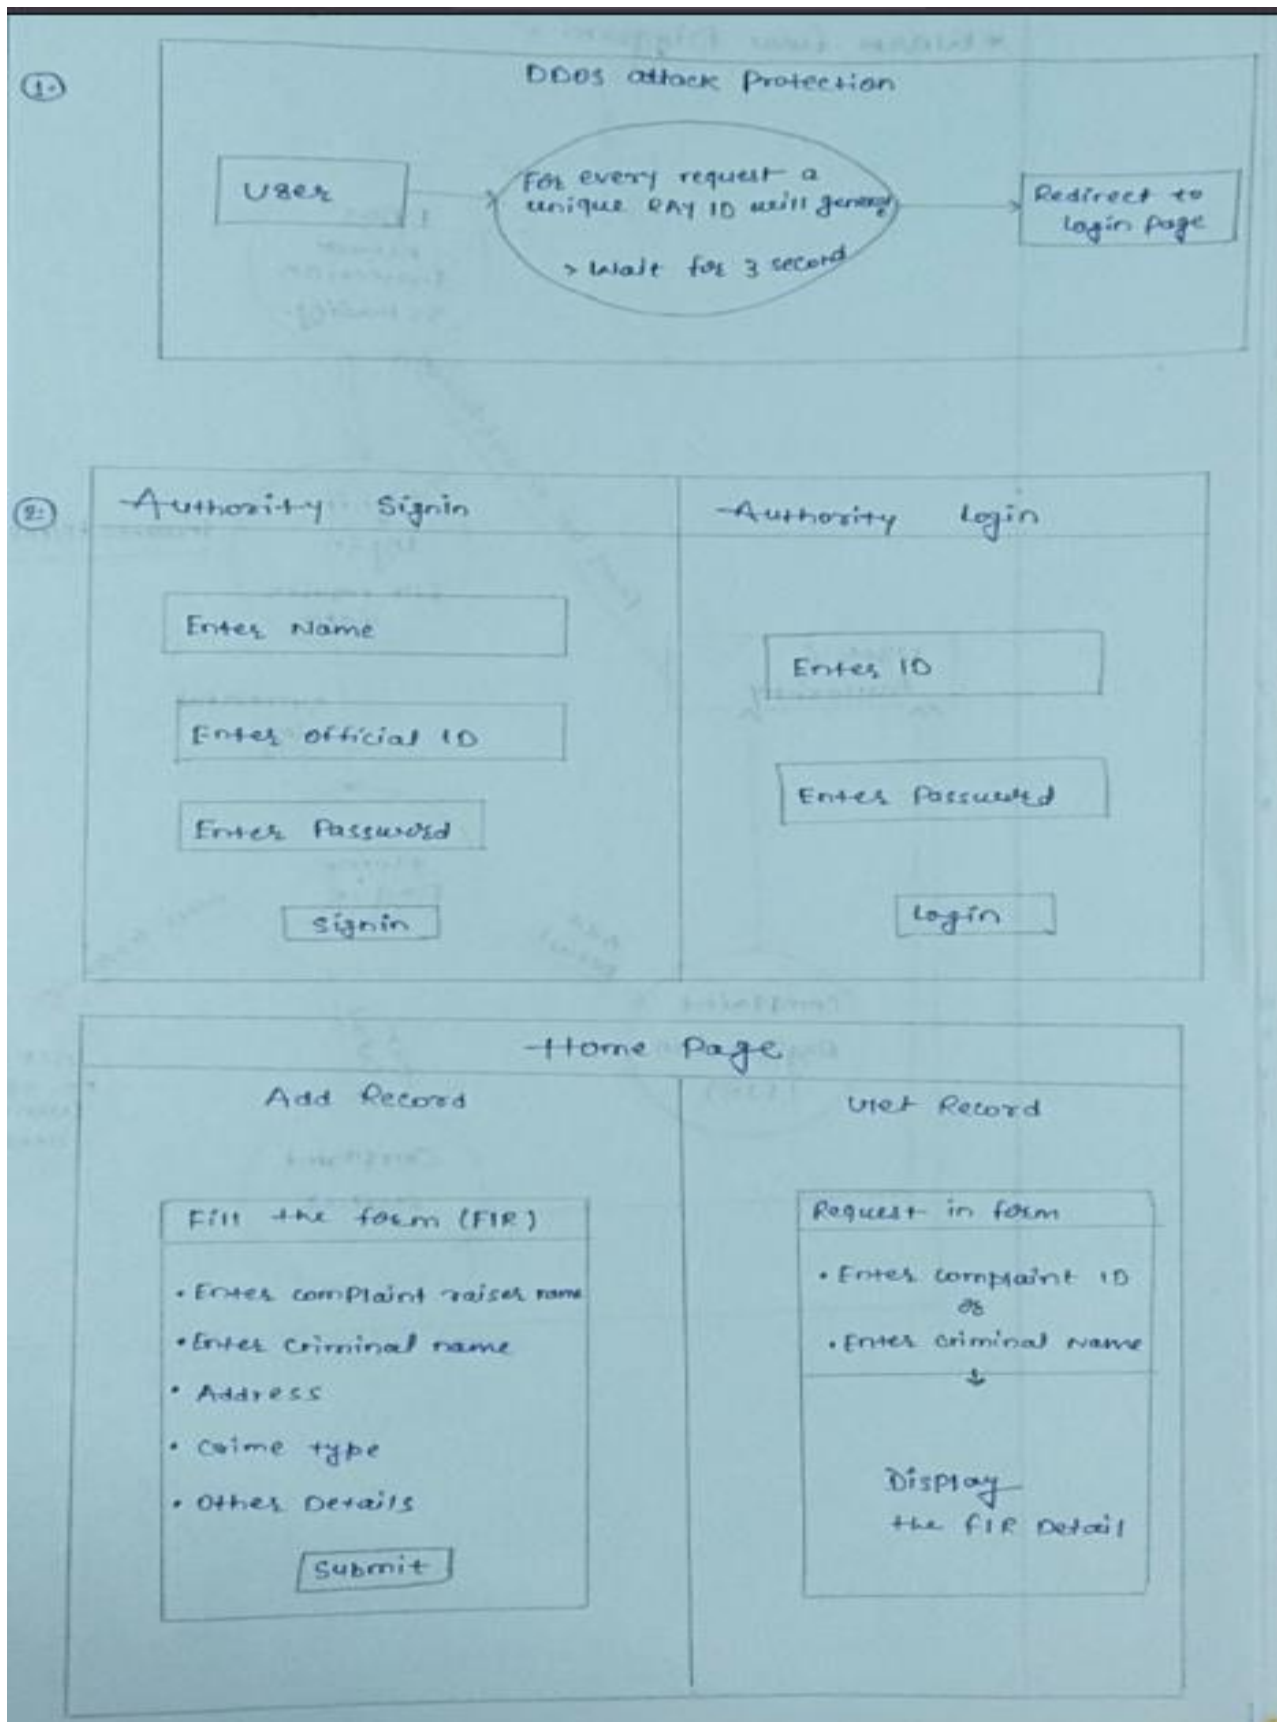 1.
DDOS attack Protection
User
For every request a
unique RAY ID will generate
> Wait for 3 second
Redirect to
Login Page
2.
Authority Signin
Authority Login
Enter Name
Enter Official ID
Enter Password
Signin
Enter ID
Enter Password
Login
Home Page
Add Record
Fill the form (FIR)
• Enter complaint raiser name
• Enter criminal name
• Address
• Crime type
• Other Details
Submit
Record
Request in form
• Enter complaint ID
or
• Enter criminal Name
Display
the FIR Detail